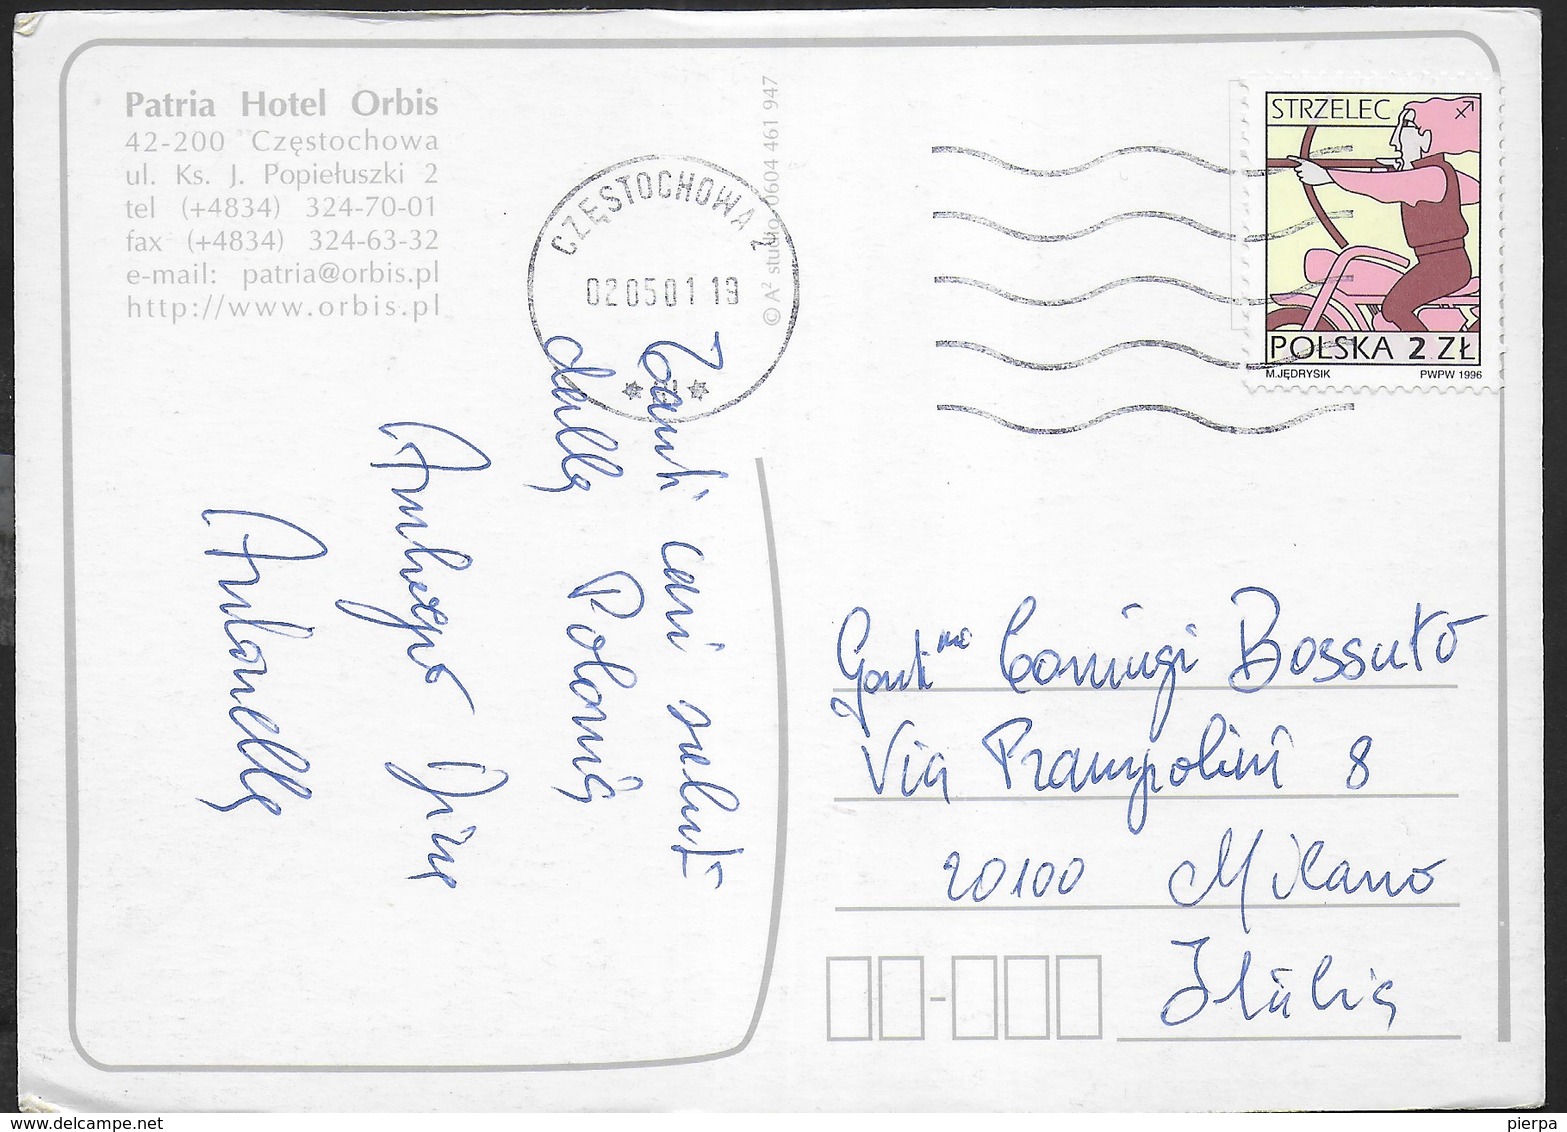 Patria Hotel Orbis
42-200 Częstochowa
ul. Ks. J. Popiełuszki 2
tel (+4834) 324-70-01
fax (+4834) 324-63-32
e-mail: patria@orbis.pl
http://www.orbis.pl
© A² studio 0604 461 947
CZĘSTOCHOWA 2
020501 19
STRZELEC
POLSKA 2 ZŁ
M.JĘDRYSIK PWPW 1996
Tanti cari saluti
dalla Polonia
Antonella
Coniugi Bossuto
Via Prampolini 8
20100 Milano
Italia
www.delcampe.net
pierpa